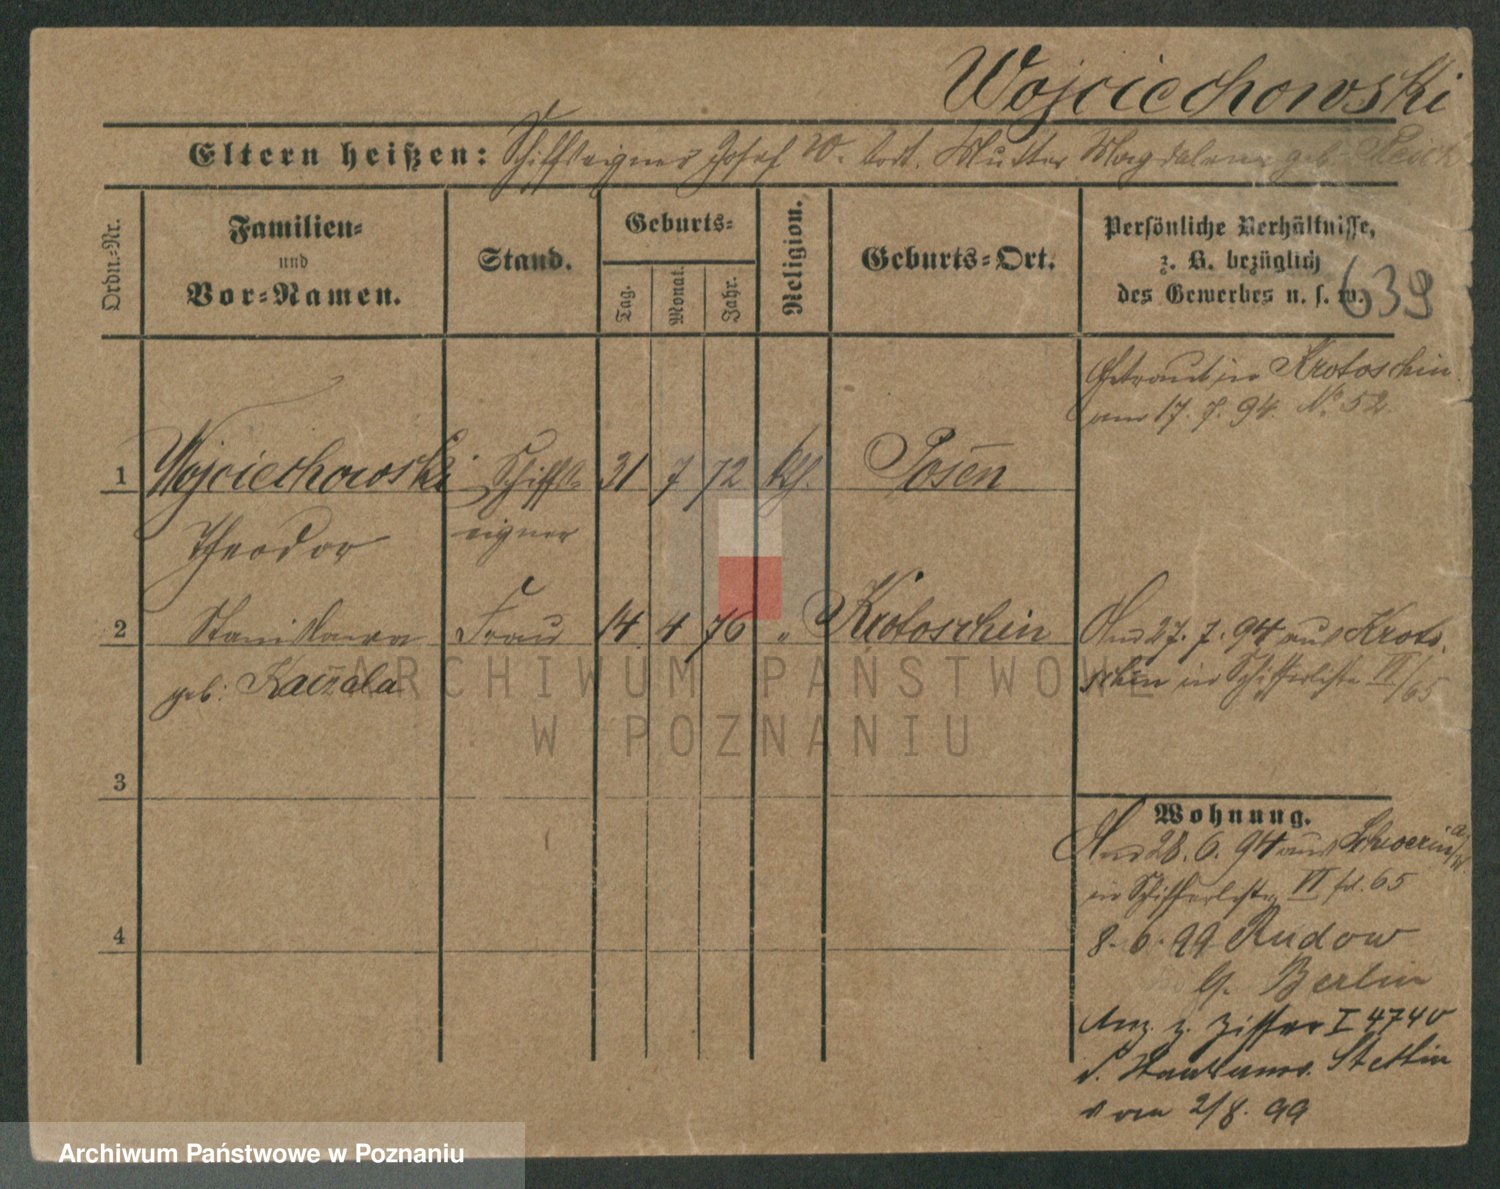 Wojciechowski
Eltern heißen: Schiffseigner Josef W. tot. Mutter Magdalena geb.
Ordn.-Nr.
Familien-
und
Vor-Namen.
Stand.
Geburts-
Tag.
Monat.
Jahr.
Religion.
Geburts-Ort.
Persönliche Verhältnisse,
z. B. bezüglich
des Gewerbes u. s. w.
639
Getraut in Krotoschin
am 17. 7. 94. No. 52.
1 Wojciechowski Schiffs- 31 7 72 kth. Posen
Theodor eigner
2 Stanislawa Frau 14 4 76 " Krotoschin
geb: Kaczala
Am 27. 7. 94 aus Kroto-
schin in Schifferliste VI/65
3
4
Wohnung.
Am 28. 6. 94 aus Schwerin a/W.
in Schifferliste VI fol. 65
8. 6. 99 Rudow
b. Berlin
Anz. z. Ziffer I 4740
d. Stettin
vom 2/8. 99
ARCHIWUM PAŃSTWOWE
W POZNANIU
Archiwum Państwowe w Poznaniu